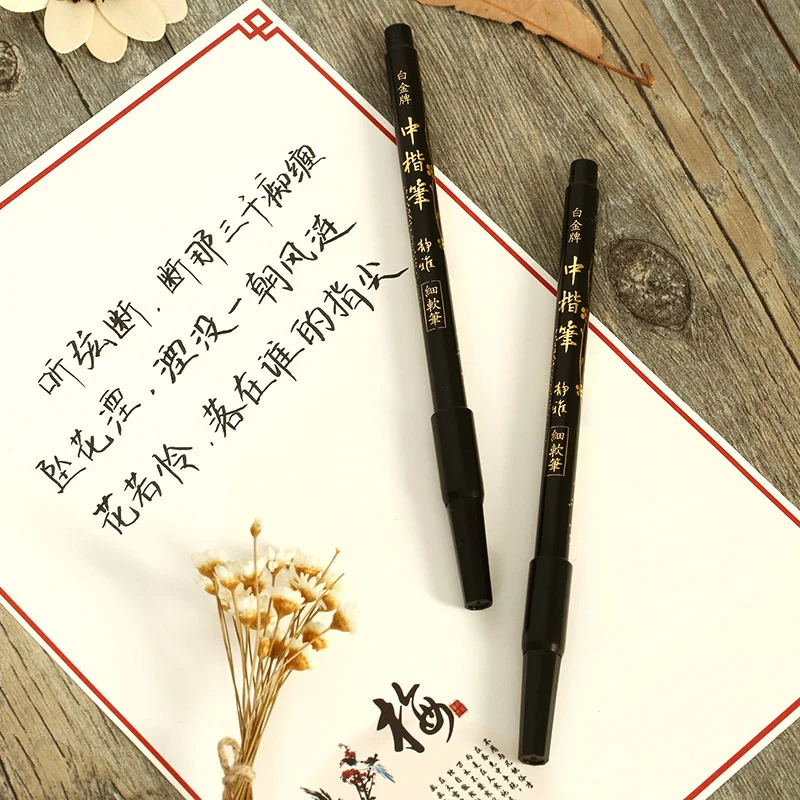 听弦断，断那三千痴缠
坠花湮，湮没一朝风涟
花若怜，落在谁的指尖
白金牌
中楷筆
静雅
细軟筆
白金牌
中楷筆
静雅
细軟筆
梅